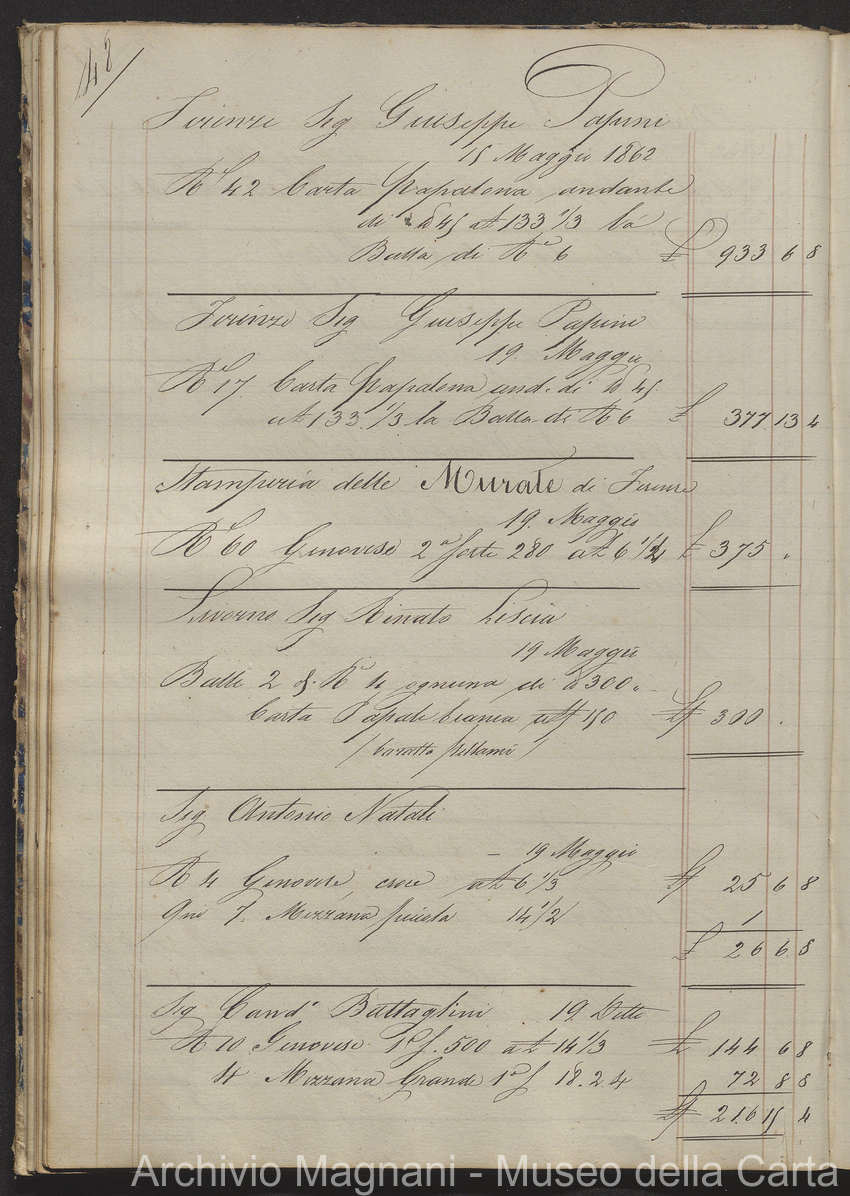 48
Firenze Sig Giuseppe Papini
15 Maggio 1862
Re 42 Carta papalona andante
di 45 a £ 133 1/3 la
Balla di Re 6 £ 933 6 8
Firenze Sig Giuseppe Papini
19. Maggio
Re 17 Carta papalona and. di 45
a £ 133. 1/3 la Balla di R 6 £ 377 13 4
Stamperia delle Murate di Firenze
19. Maggio
Re 60 Genovese 2a forte 280 a £ 6 1/4 £ 375 "
Livorno Sig Rinato Liscia
19 Maggio
Balle 2 di Re 4 ognuna di 300 "
Carta Papale bianca a £ 150 £ 300 .
/ baratto pellami /
Sig Antonio Natali
19 Maggio
R 4 Genovese, croce a £ 6 1/3 £ 25 6 8
Qni 7. Mezzana piccola 14 1/2 1
£ 26 6 8
Sig Cand° Battaglini 19 Detto
R 10 Genovese 1a f. 500 a £ 14 1/3 £ 144 6 8
4 Mezzana Grande 1a f 18. 2. 4 72 8 8
£ 216 15 4
Archivio Magnani - Museo della Carta